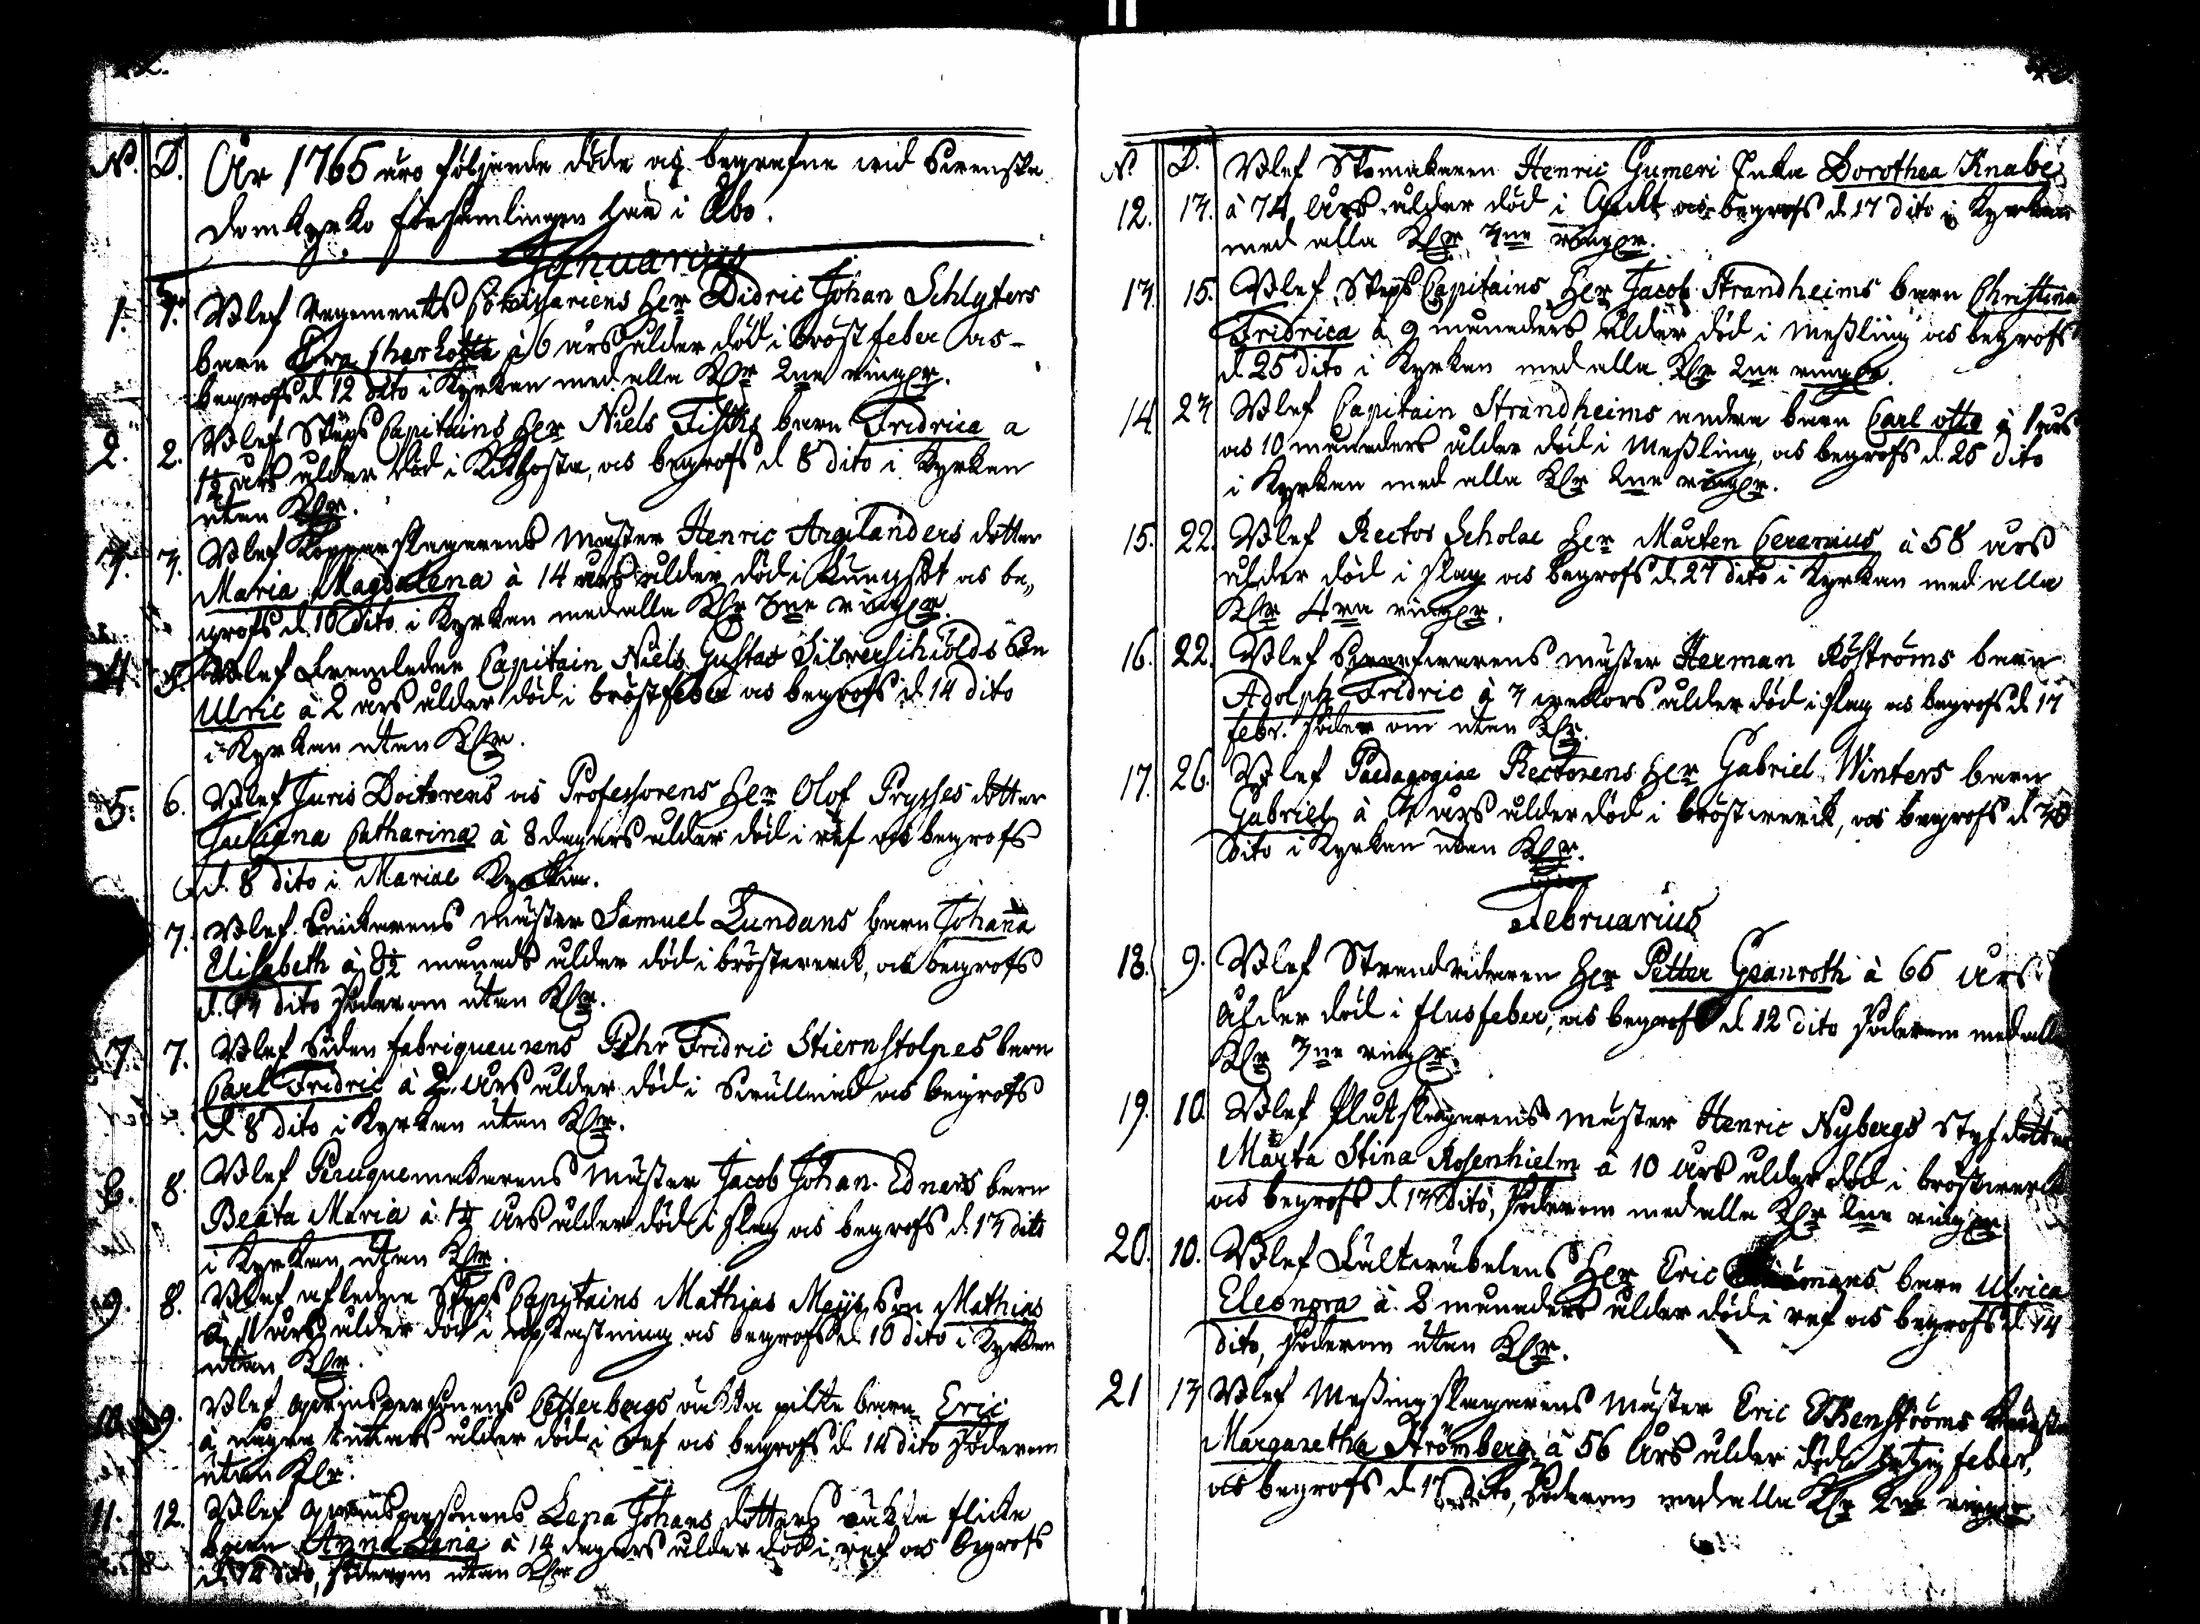 N. D. År 1765 äro följande döde och begrafne wid Swenska
domkyrko församlingen här i Åbo.
Januarius
1. 1. Blef Regements Commissariens Her Didric Johan Schlyters
barn Eva Charlotta à 6 års ålder död i bröstfeber och
begrofs d. 12 dito i Kyrkan med alla Klr 2ne ringr.
2. 2. Blef Skeps Capitains Her Niels Fischs barn Fridrica a
1½ års ålder död i Kikhosta, och begrofs d 8 dito i Kyrkan
utan Klr.
3. 3. Blef Kopparslagarens Mäster Henric Argilanders dotter
Maria Magdalena à 14 års ålder död i Lungsot och be„
grofs d. 10 dito i Kyrkan med alla Klr 3ne ringr.
4 5. Blef framledne Capitain Niels Gustav Silverschiölds Son
Ulric à 2 års ålder död i bröstfeber och begrofs d. 14 dito
i Kyrkan utan Klr.
5. 6. Blef Juris Doctorens och Professorens Her Olof Pryshes dotter
Juliana Catharina à 8 dagars ålder död i ref och begrofs
d. 8 dito i Mariae Kyrkia.
7. Blef Snickarens Mäster Samuel Lundans barn Johanna
Elisabeth à 8½ månads ålder död i bröstwerck, och begrofs
d. 13 dito Söderom utan Klr.
7. 7. Blef Siden fabriqueurens Pehr Fridric Stiernstolpes barn
Carl Fridric à 2 Års ålder död i och begrofs
d. 8 dito i Kyrkan utan Klr.
8. 8. Blef Peruquemakarens Mäster Jacob Johan Edners barn
Beata Maria à 1¼ Års ålder död i slag och begrofs d. 13 dito
i Kyrkan utan Klr.
9. 8. Blef afledne Skeps Capitains Mathias Mays Son Mathias
à 11 års ålder död i uppkastning och begrofs d. 10 dito i Kyrkan
utan Klr.
10 9. Blef Cetterbergs oäkta gilte barn Eric
à några timars ålder död i ref och begrofs d. 14 dito Söderom
utan Klr.
11. 12. Blef Lena Johans dotters oäkta flicke
barn Anna Lena à 14 dagars ålder död i ref och begrofs
d. 14 dito, Söderom utan Klr
N. D. Blef Skomakaren Henric Gumeri Enka Dorothea Knabe
12. 13. à 74 Års ålder död i och begrofs d. 17 dito i Kyrkan
med alla Klr 3ne ringr.
13. 15. Blef Skeps Capitains Her Jacob Strandheims barn Christina
Fridrica à 9 månaders ålder död i Meßling och begrofs
d. 25 dito i Kyrkan med alla Klr 2ne ringr.
14 23 Blef Capitain Strandheims andra barn Carl otto à 1 års
och 10 månaders ålder död i Meßling, och begrofs d. 25 dito
i Kyrkan med alla Klr 2ne ringr.
15. 22. Blef Rector Scholae Her Mårten Cerenius à 58 års
ålder död i slag och begrofs d. 27 dito i Kyrkan med alla
Klr 4ra ringr.
16. 22. Blef Swarfwarens Mäster Herman Röströms barn
Adolph Fridric à 3 weckors ålder död i slag och begrofs d. 17
febr. Söder om utan Klr.
17. 26. Blef Paedagogiae Rectorens Her Gabriel Winters barn
Gabriel à års ålder död i bröstwerck, och begrofs d. 30
dito i Kyrkan utan Klr.
Februarius
18. 9. Blef Strandridaren Her Petter Granroth à 65 Års
ålder död i flusfeber, och begrofs d. 12 dito Söderom med alla
Klr 3ne ringr.
19. 10 Blef Plåtslagarens Mäster Henric Nybergs styfdotter
Märta Stina Rosenhielm à 10 Års ålder död i bröstwerck
och begrofs d. 17 dito, Söderom med alla Klr 2ne ringr.
20. 10. Blef Her Eric barn Ulrica
Eleonora à 8 månaders ålder död i ref och begrofs d. 14
dito, Söderom utan Klr.
21 13 Blef Meßingslagarens Mäster Eric Ekenströms hustru
Margaretha Strömberg à 56 Års ålder död i feber,
och begrofs d. 17 dito, Söderom med alla Klr 2ne ringr